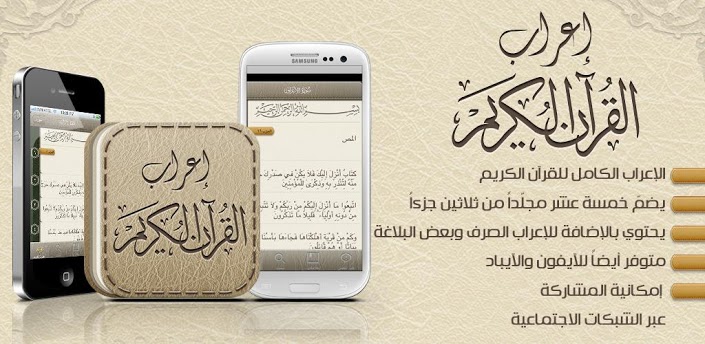 إعراب
القرآن الكريم
الإعراب الكامل للقرآن الكريم
يضمّ خمسة عشر مجلّداً من ثلاثين جزءاً
يحتوي بالإضافة للإعراب الصرف وبعض البلاغة
متوفر أيضاً للآيفون والآيباد
إمكانية المشاركة
عبر الشبكات الاجتماعية
إعراب
القرآن الكريم
SAMSUNG
بسم الله الرحمن الرحيم
المص
كتاب أنزل إليك فلا يكن في صدرك
منه لتنذر به وذكرى للمؤمنين
اتبعوا ما أنزل إليكم من ربكم ولا
من دونه أولياء قليلا ما تذكرون
وكم من قرية أهلكناها فجاءها بأسنا
بياتا أو هم قائلون